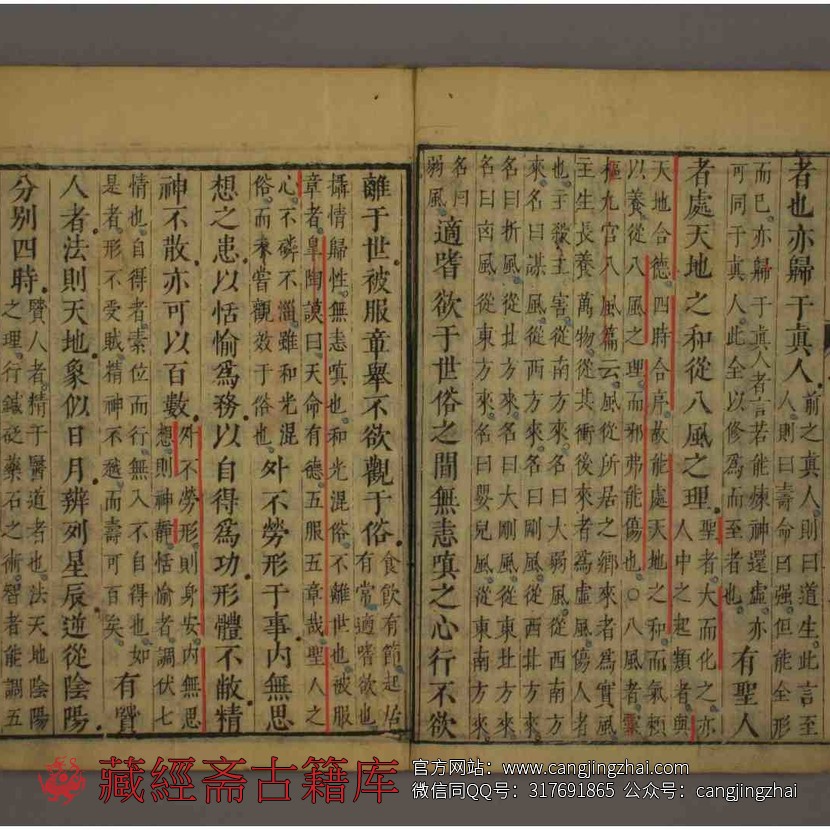 者也亦歸于真人前之真人則曰道生此言至
人則曰壽命曰强但能全形
而已亦歸于真人者言若能煉神還虛亦
可同于真人此全以修為而至者也有聖人
者處天地之和從八風之理聖者大而化之亦
人中之起類者與
天地合德四時合序故能處天地之和而氣頼
以養從八風之理而邪弗能傷也○八風者靈
樞九宮八風篇云風從所居之鄉來者為實風
主生長養萬物從其衝後來者為虛風傷人者
也主殺主害從南方來名曰大弱風從西南方
來名曰謀風從西方來名曰剛風從西北方來
名曰折風從北方來名曰大剛風從東北方來
名曰凶風從東方來名曰嬰兒風從東南方來
名曰
弱風適嗜欲于世俗之間無恚嗔之心行不欲
離于世被服章舉不欲觀于俗食飲有節起居
有常適嗜欲也
攝情歸性無恚嗔也和光混俗不離世也被服
章者皐陶謨曰天命有德五服五章哉聖人之
心不磷不淄雖和光混
俗而未嘗觀效于俗也外不勞形于事内無思
想之患以恬愉為務以自得為功形體不敝精
神不散亦可以百數外不勞形則身安内無思
想則神靜恬愉者調伏七
情也自得者素位而行無入不自得也如
是者形不受賊精神不越而壽可百矣有賢
人者法則天地象似日月辨列星辰逆從陰陽
分别四時賢人者精于醫道者也法天地陰陽
之理行鍼砭藥石之術智者能調五
藏經斋古籍库
官方网站：www.cangjingzhai.com
微信同QQ号：317691865 公众号：cangjingzhai